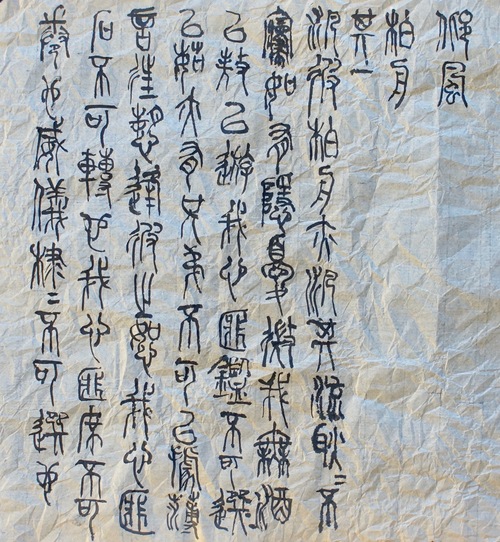 邶風
柏舟
其一
汎彼柏舟亦汎其流耿〻不
寐如有隱憂微我無酒
以敖以遊我心匪鑒不可選
以茹亦有兄弟不可以據薄
言往愬逢彼之怒我心匪
石不可轉也我心匪席不可
卷也威儀棣〻不可選也